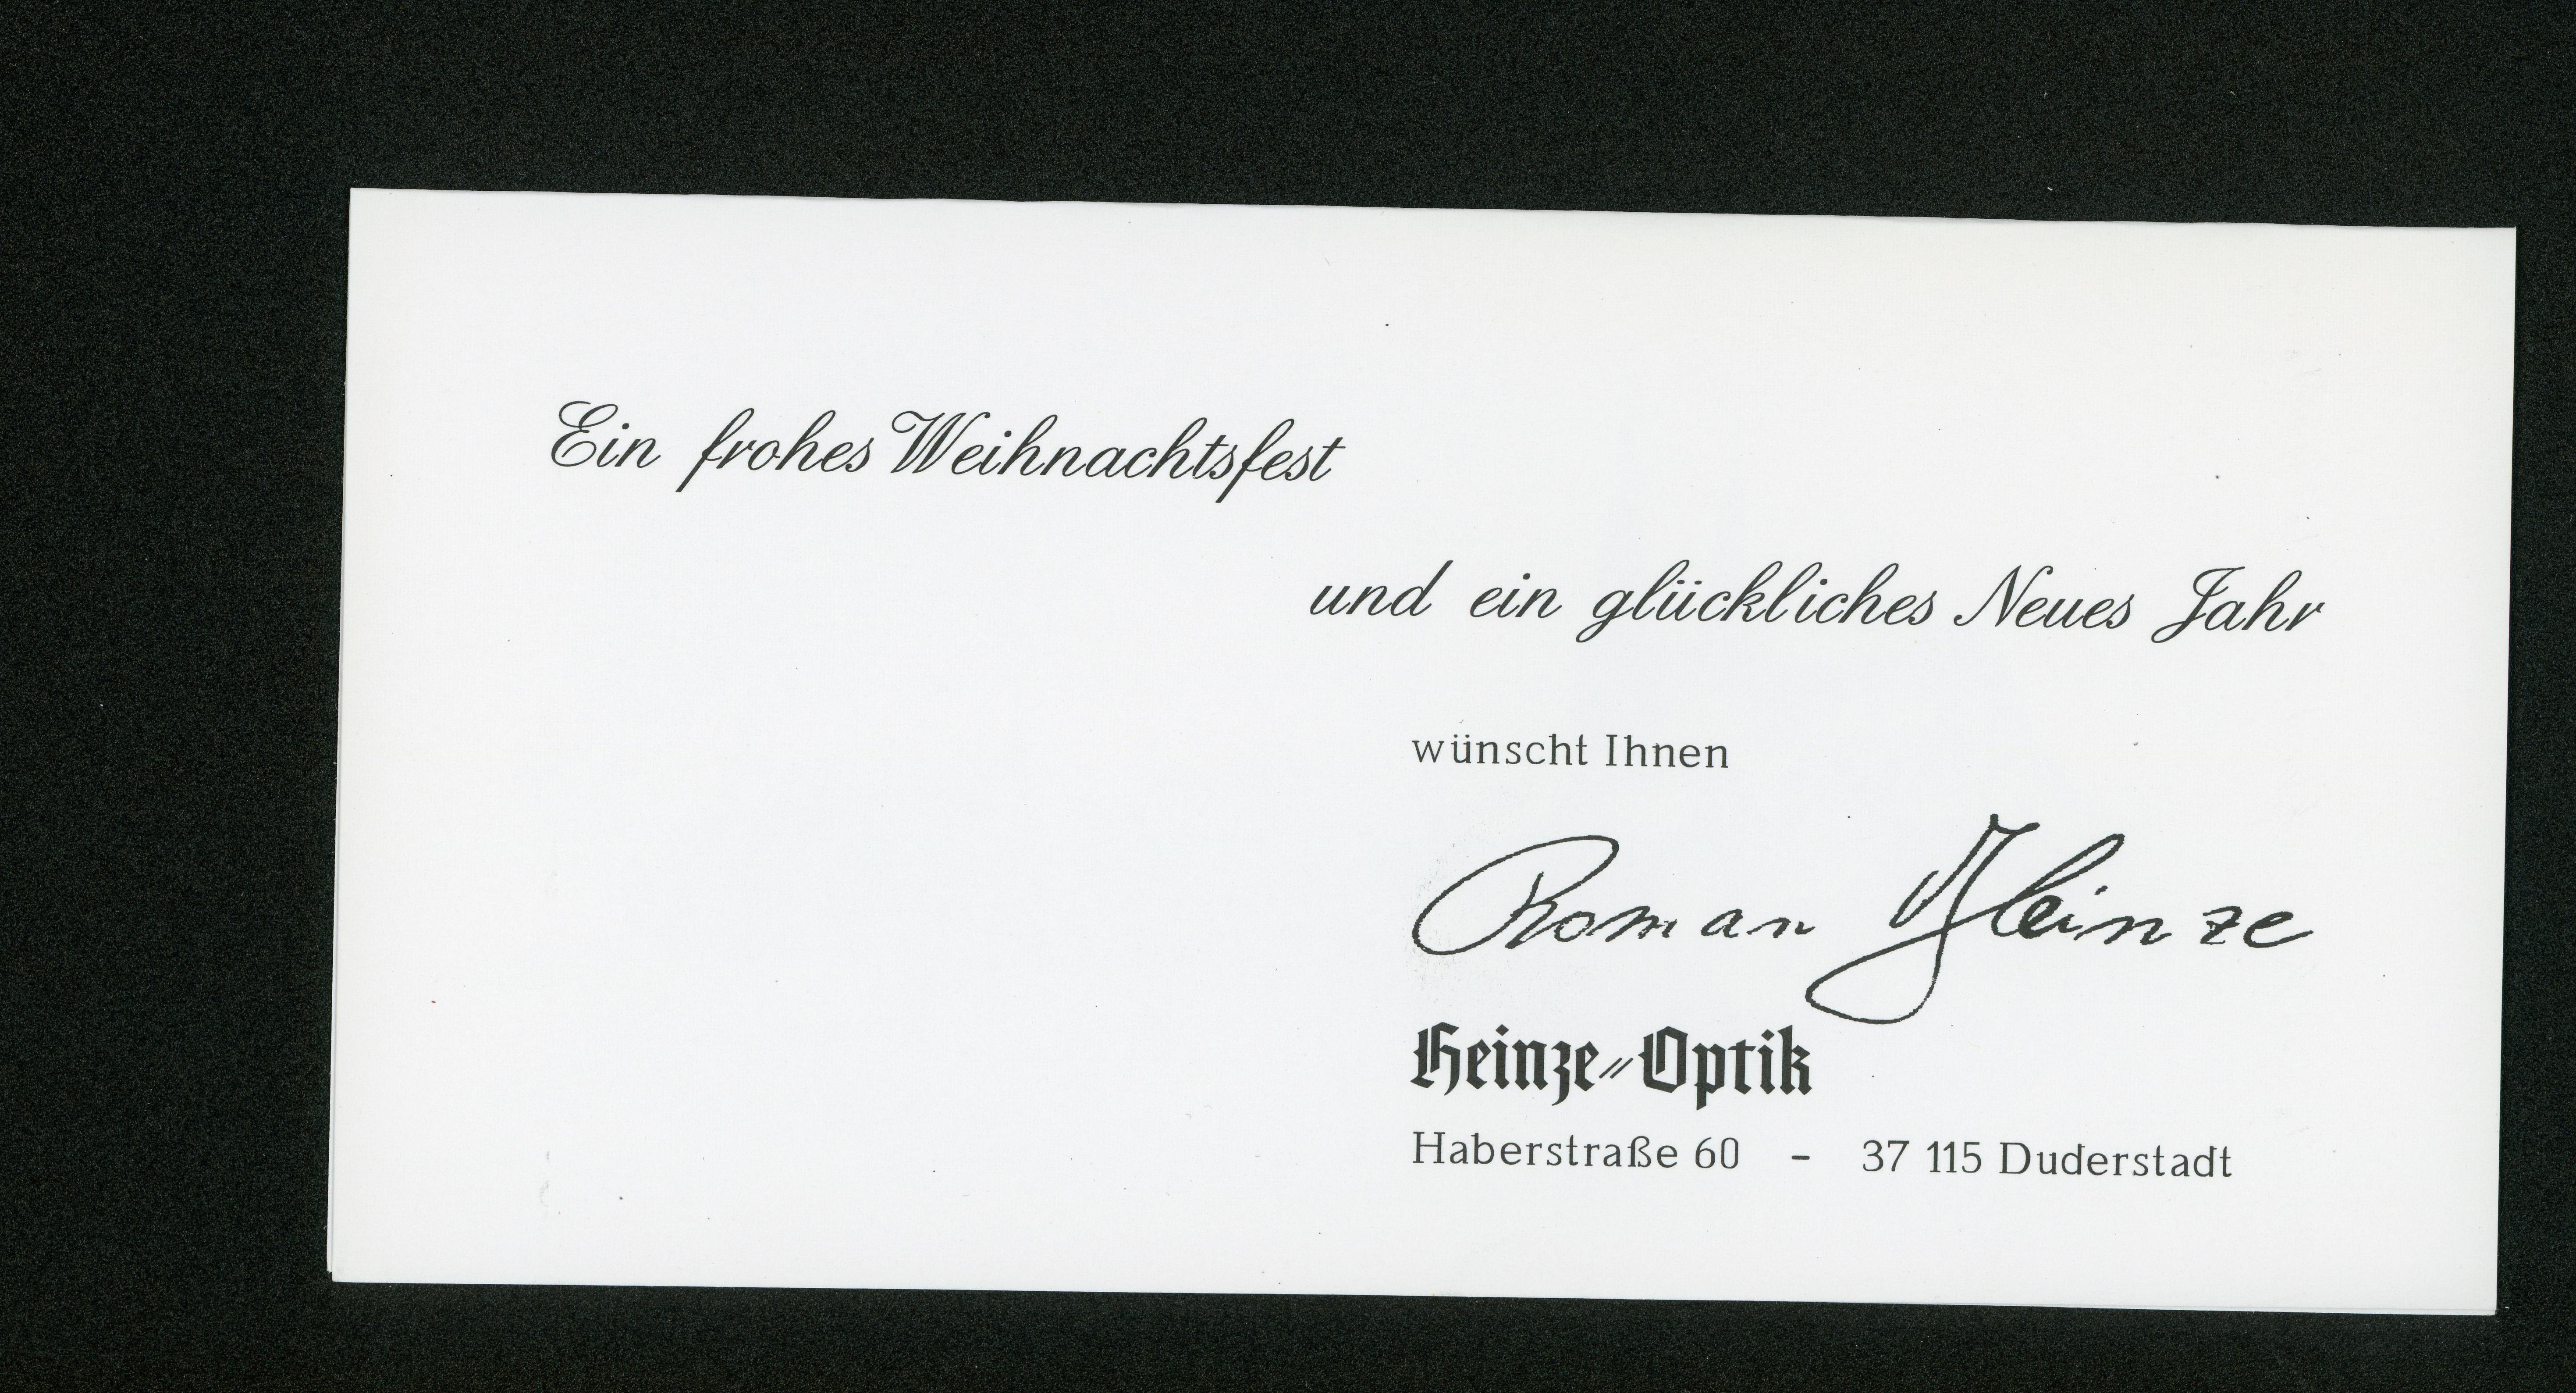 Ein frohes Weihnachtsfest
und ein glückliches Neues Jahr
wünscht Ihnen
Roman Heinze
Heinze-Optik
Haberstraße 60 - 37 115 Duderstadt